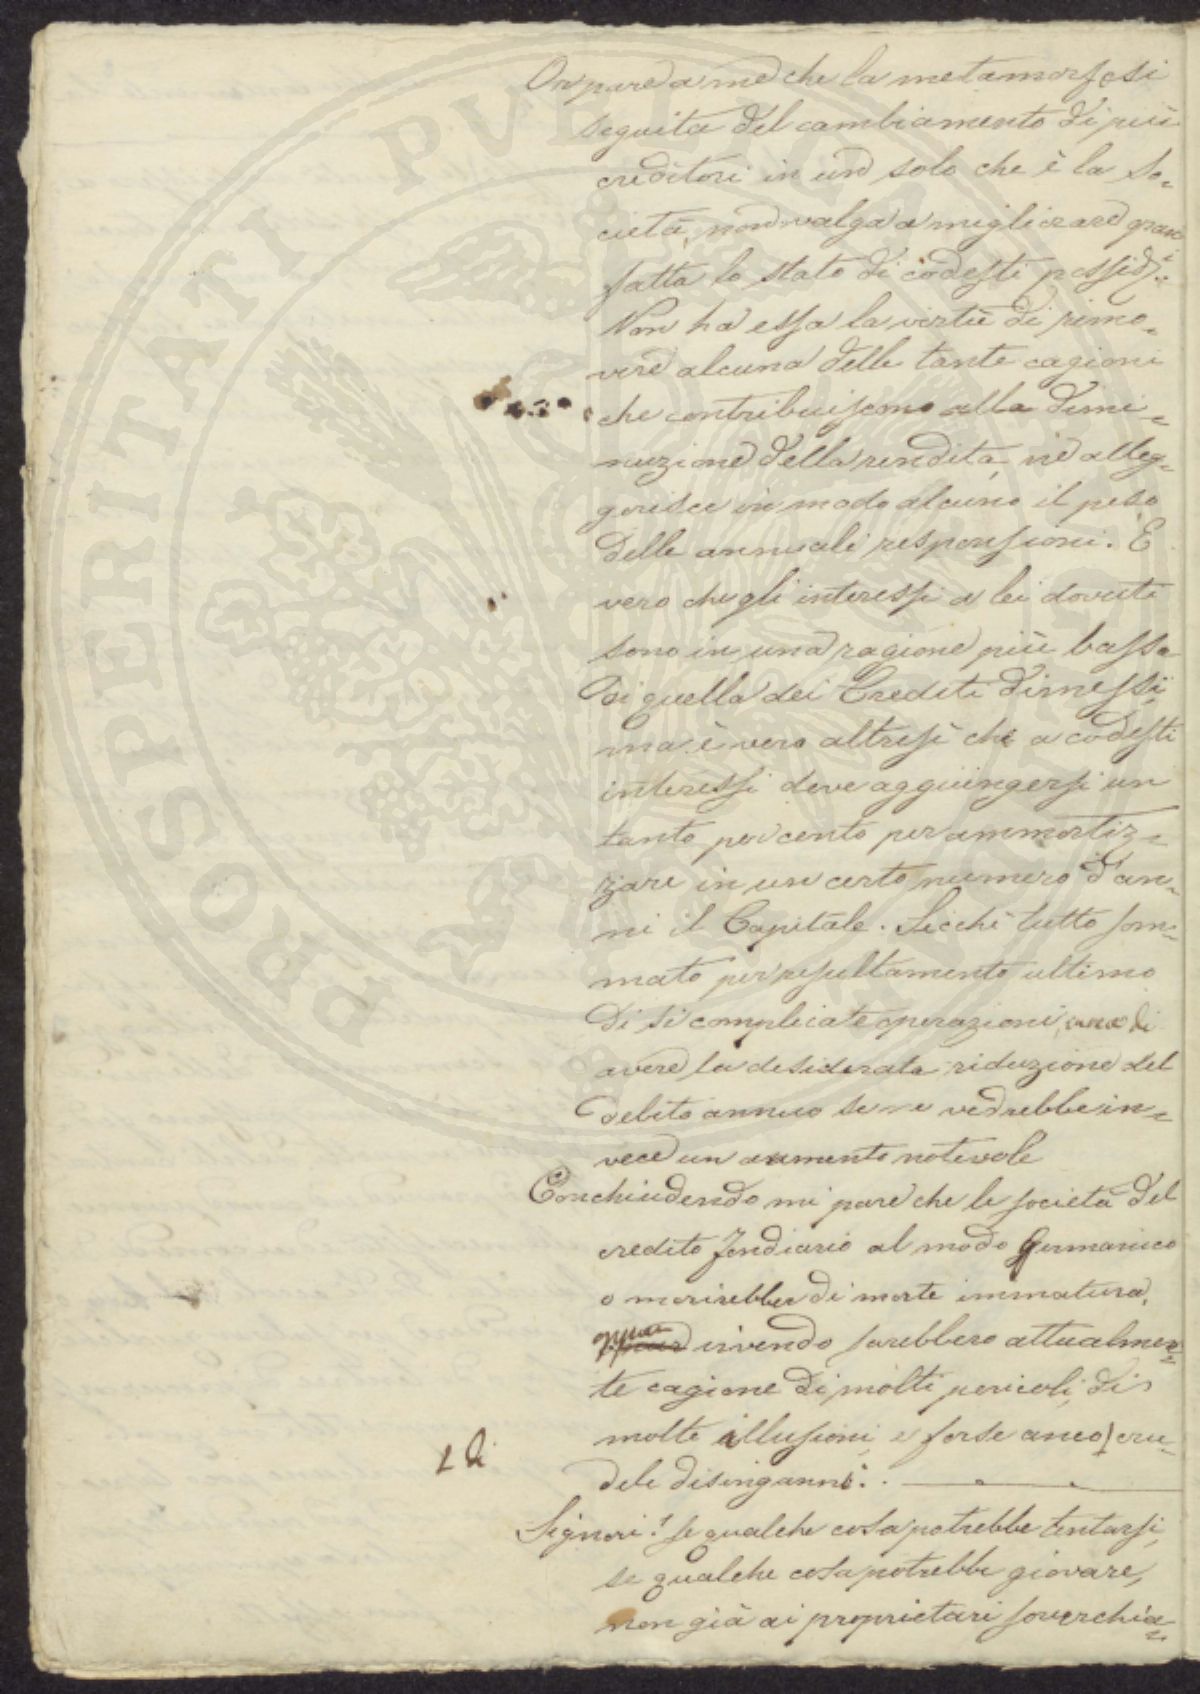 Or pare a me che la metamorfosi
seguita del cambiamento di più
creditori in uno solo che è la So=
cietà, non valga a migliorare gran
fatta lo stato di codesti possid.i
Non ha essa la virtù di rimo=
vere alcuna delle tante cagioni
che contribuiscono alla dimi=
nuzione della rendita, nè alleg=
gerisce in modo alcuno il peso
delle annuali responsioni. È
vero che gli interessi a lei dovuti
sono in una ragione più bassa
di quella dei Crediti dimessi,
ma è vero altresì che a codesti
interessi deve aggiungersi un
tanto per cento per ammortiz=
zare in un certo numero d'an=
ni il Capitale. Sicchè tutto som=
mato per resultamento ultimo
di sì complicate operazioni, di
avere la desiderata riduzione del
debito annuo se ne vedrebbe in=
vece un aumento notevole
Conchiudendo mi pare che le società del
credito fondiario al modo Germanico
o morirebber di morte immatura,
oppure vivendo sarebbero attualmen=
te cagione di molti pericoli, di
molte illusioni e forse anco cru=
L di
deli disinganni.
Signori! se qualche cosa potrebbe tentarsi,
se qualche cosa potrebbe giovare,
non già ai proprietari soverchia=
PROSPERITATI PVBLICAE